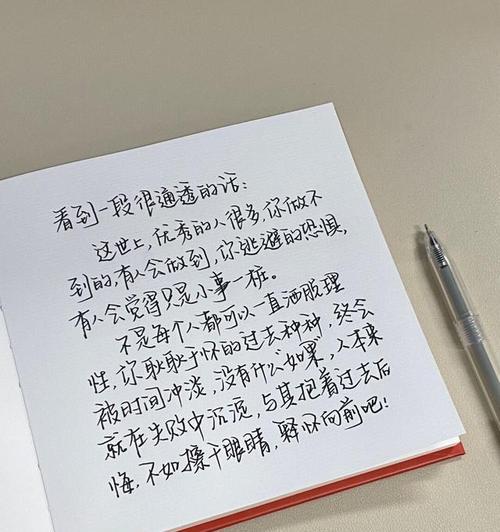 看到一段很通透的话:
这世上,优秀的人很多,你做不
到的,有人会做到,你逃避的恐惧,
有人会觉得只是小事一桩。
不是每个人都可以一直洒脱理
性,你耿耿于怀的过去种种,终会
被时间冲淡,没有什么如果,人本来
就在失败中沉淀,与其抱着过去后
悔,不如擦干眼睛,释怀向前吧!